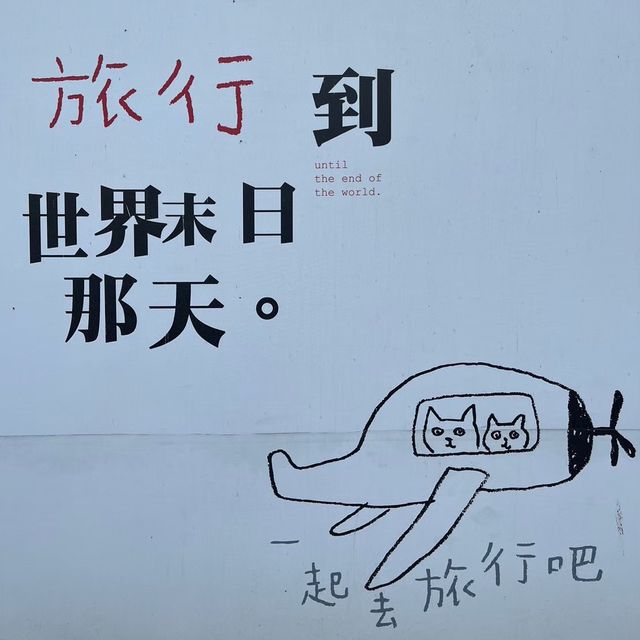 旅行到
until
the end of
the world.
世界末日
那天。
一起去旅行吧